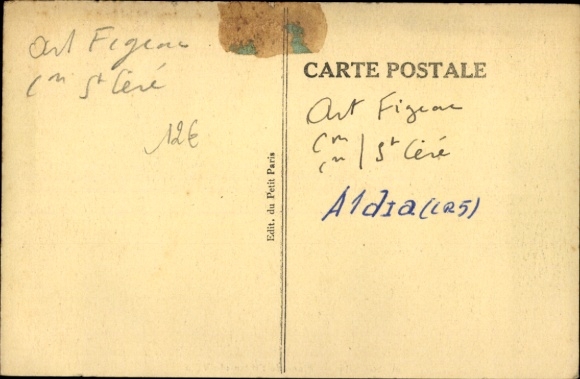 Art Figeac
Cⁿ Sᵗ Céré
12€
Edit. du Petit Paris
CARTE POSTALE
Art Figeac
Cᵒⁿ
Cᵒⁿ / Sᵗ Céré
A1d1a (1R5)